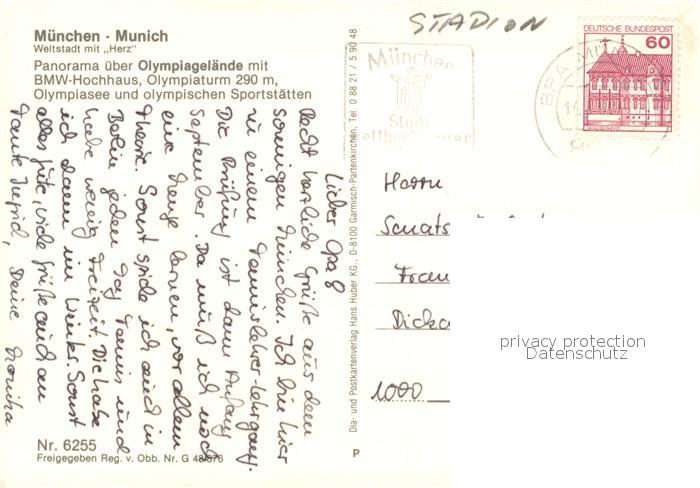 München · Munich
Weltstadt mit „Herz"
Panorama über Olympiagelände mit
BMW-Hochhaus, Olympiaturm 290 m,
Olympiasee und olympischen Sportstätten
STADION
München
Stadt
DEUTSCHE BUNDESPOST
60
BPA MÜN
14
Lieber Opa!
Recht herzliche Grüße aus dem
sonnigen München. Ich bin hier
zu einem Tennislehrer-Lehrgang.
Die Prüfung ist dann Anfang
September. Da muß ich noch
eine Menge lernen, vor allem
Theorie. Sonst spiele ich auch in
Berlin jeden Tag Tennis und
habe wenig Freizeit. Die habe
ich dann im Winter. Sonst
alles gute, viele Grüße auch an
Tante Ingrid, Deine Monika
Dia- und Postkartenverlag Hans Huber KG., D-8100 Garmisch-Partenkirchen, Tel. 0 88 21 / 5 90 48
Herrn
Senats
1000
privacy protection
Datenschutz
Nr. 6255
Freigegeben Reg. v. Obb. Nr. G
P